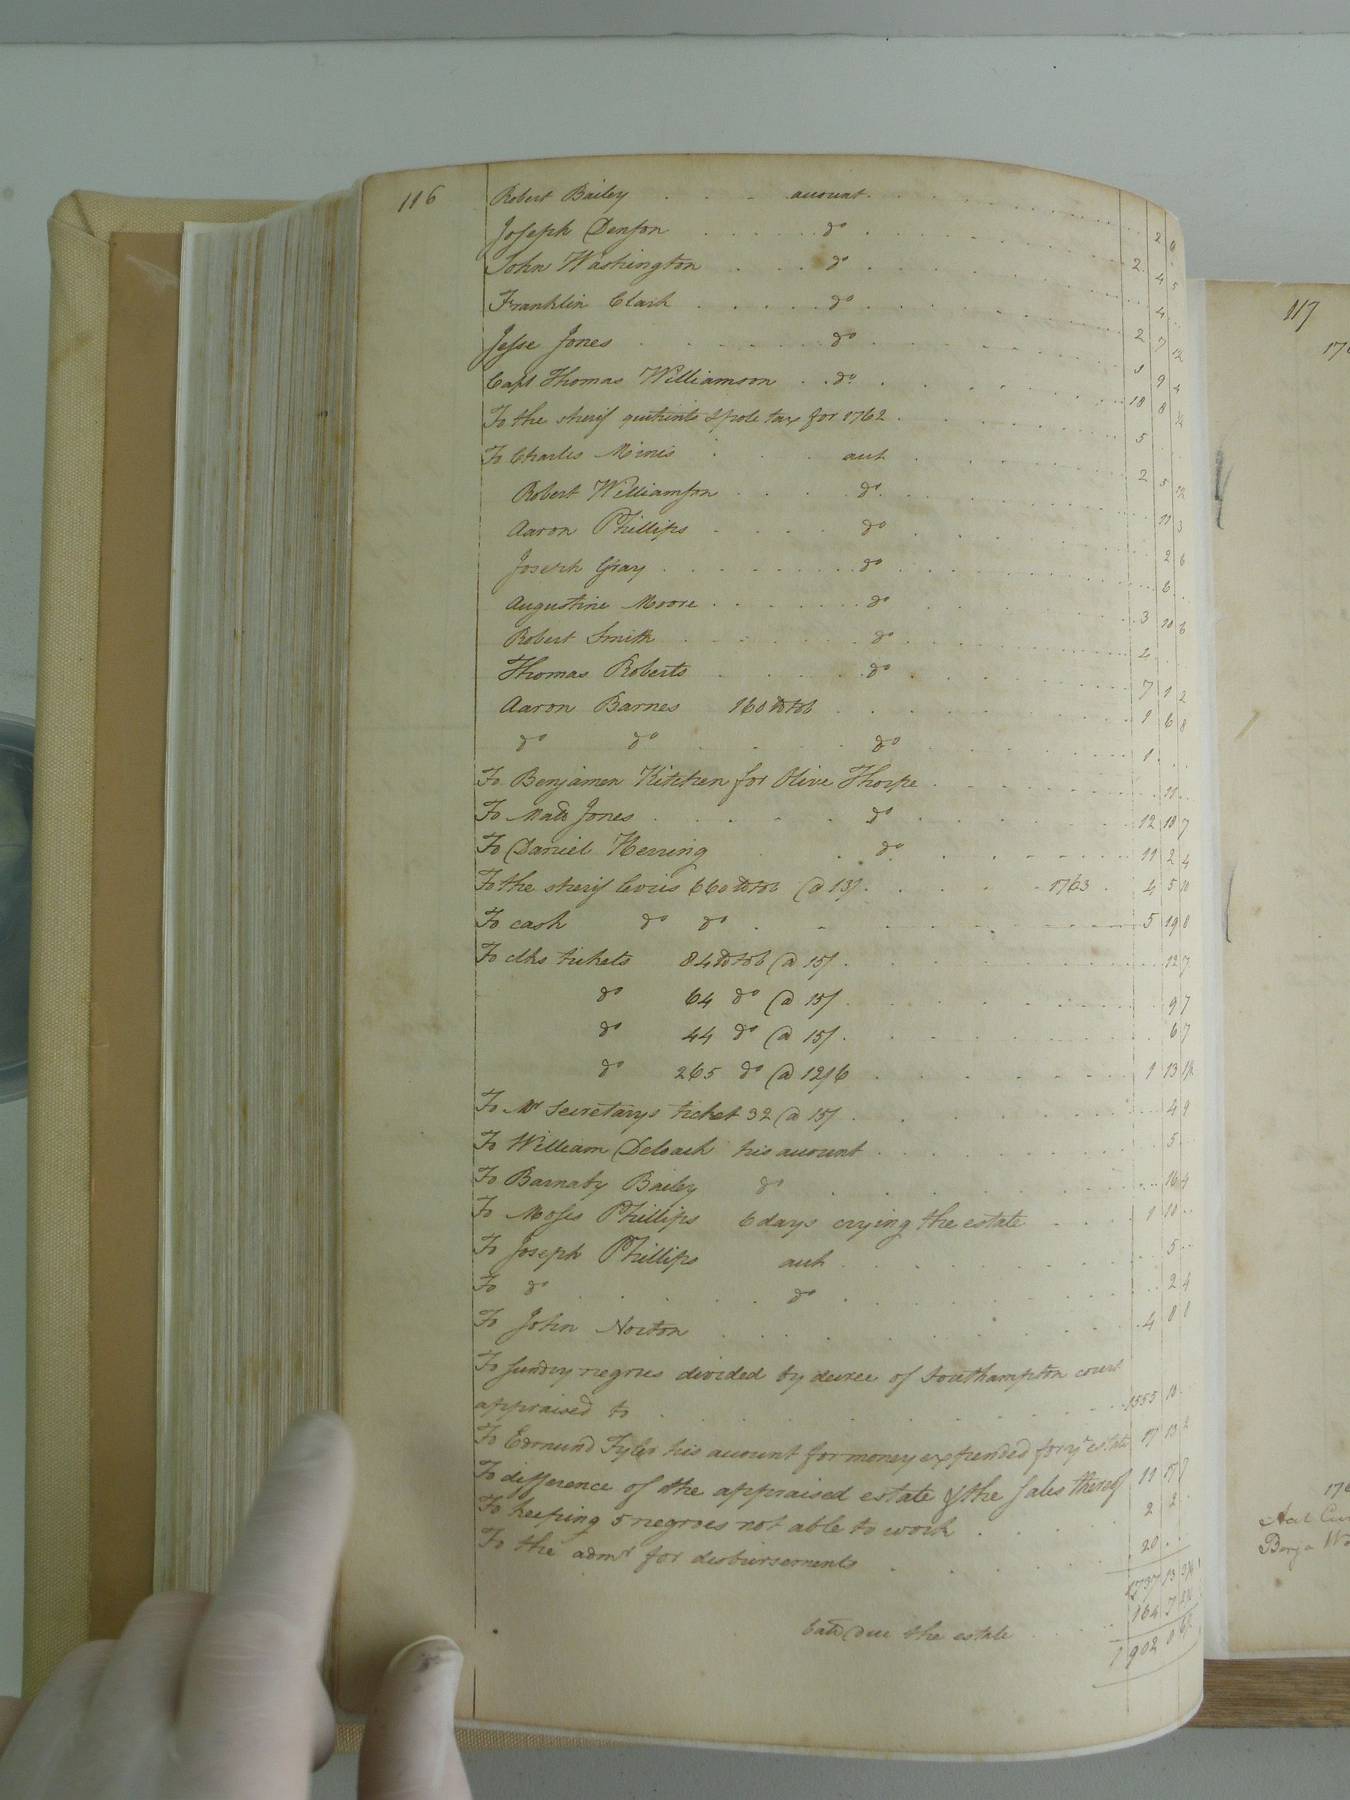 116
Robert Bailey . . . account . . . 2 6
Joseph Denson . . . do . . . 2 4 5
John Washington . . . do . . . 4
Franklin Clark . . . do . . . 2 7
Jesse Jones . . . do . . . 9 4
Capt Thomas Williamson . . do . . . 10 8
To the sherif quitrents & pole tax for 1762 . . . 5
To Charles Mimis . . . acct . . . 2 5
Robert Williamson . . . do . . . 11 3
Aaron Phillips . . . do . . . 2 6
Joseph Gray . . . do . . . 6
Augustine Moore . . . do . . . 3 10 6
Robert Smith . . . do . . . 2
Thomas Roberts . . . do . . . 7 1 2
Aaron Barnes 160 lb tob . . . 1 6 8
do do . . . do . . . 1
To Benjamen Kitchen for Olive Thorpe . . . 11
To Matt Jones . . . do . . . 12 10 7
To Daniel Herring . . . do . . . 11 2 4
To the sherif levies 660 lb tob @ 13/ . . . 1763 . 4 5 10
To cash do do . . . 5 19 8
To clks tickets 84 lb tob @ 15/ . . . 12 7
do 64 do @ 15/ . . . 9 7
do 44 do @ 15/ . . . 6 7
do 265 do @ 12/6 . . . 1 13 1½
To Mr Secretarys ticket 32 @ 15/ . . . 4 9
To William Deloach his account . . . 5
To Barnaby Bailey do . . . 16 4
To Moses Phillips 6 days crying the estate . . . 1 10
To Joseph Phillips acct . . . 5
To do . . . do . . . 2 4
To John Norton . . . 4 8 8
To sundry negroes divided by decree of Southampton court
appraised to . . . 1555 10
To Edmund Tyler his account for money expended for ye estate 17 13 2
To difference of the appraised estate & the sales thereof 11 17
To keeping 5 negroes not able to work . . . 2 2
To the admr for disbursements . . . 20
1737 13
164 7
balce due the estate . . . 1902 0
117
176
176
Aal Cur
Benja Wo